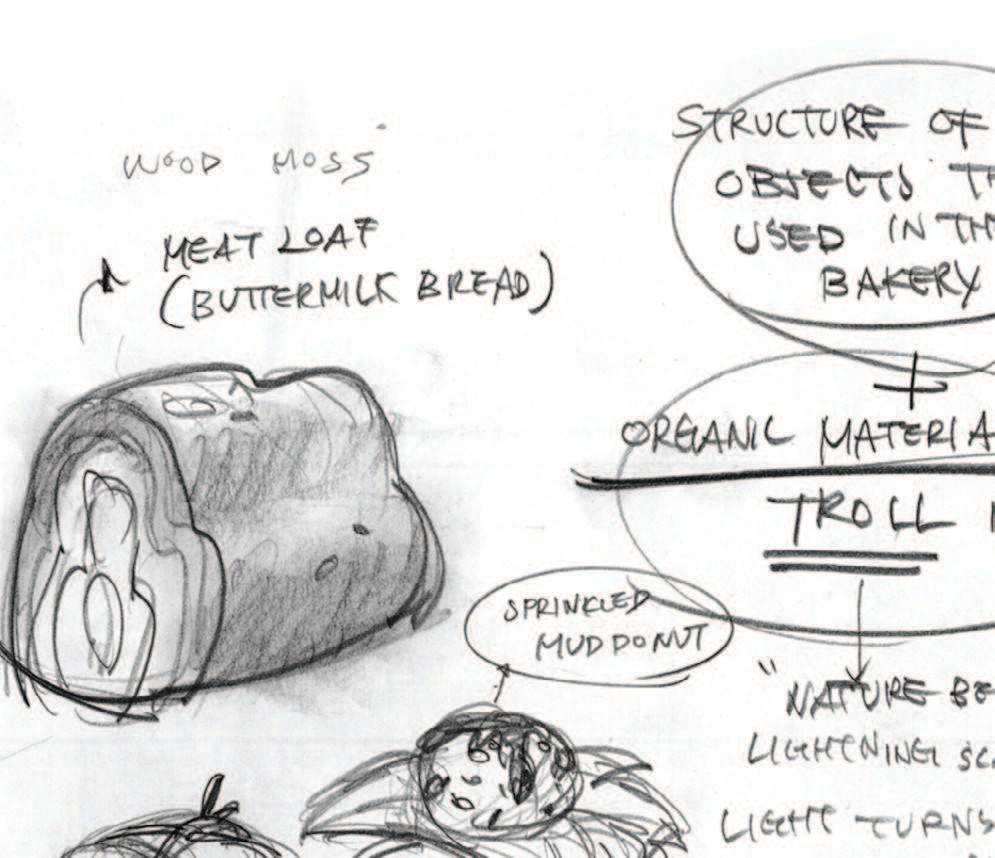 WOOD MOSS
MEAT LOAF
(BUTTERMILK BREAD)
STRUCTURE OF
OBJECTS
USED IN
BAKERY
+
ORGANIC
TROLL
SPRINKLED
MUD DONUT
"NATURE
LIGHTNING
LIGHT TURNS